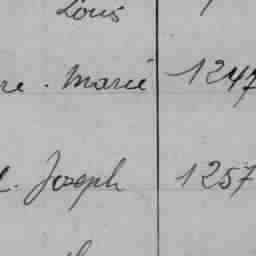 Louis
re. Marie 1247
l. Joseph 1257